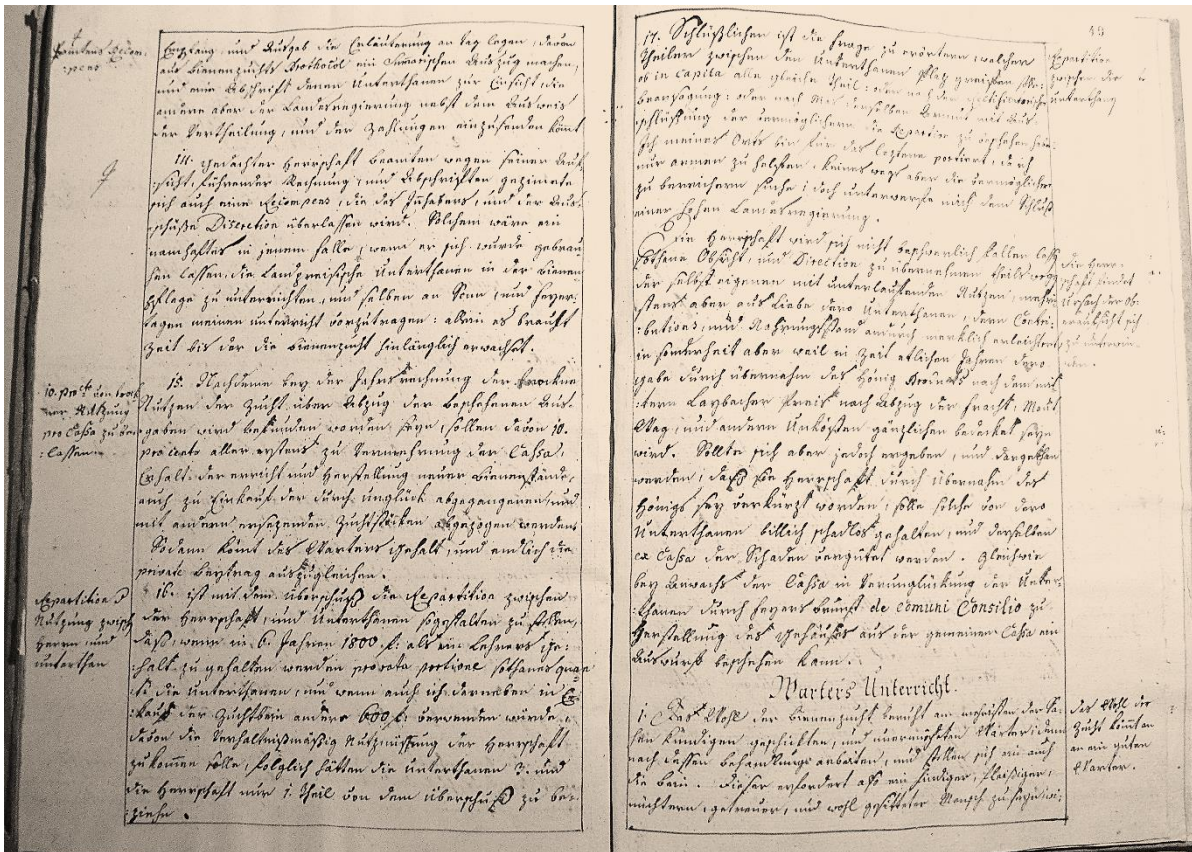 Beamtens Recom-
pens
Empfang, und Ausgab die Erläuterung an tag legen, davon
aus bienenzuchts Prothocol ein Auszug machen,
und eine Abschrift denen Unterthanen zur Einsicht, die
andere aber der Landesregierung nebst dem Ausweis
der Vertheilung, und der Zahlungen einzusenden kömt
14. gedachter Herrschaft Beamten wegen seiner Auf-
sicht, führender Rechnung, und Abschriften gezimete
sich auch eine Recompens, die des Inhabers, und der Aus-
schüsse Discretion überlassen wird. Solchem wäre ein
namhaftes in jenem falle, wenn er sich wurde gebrau-
chen lassen, die Unterthanen in der bienen
pflege zu unterrichten, und selben an Sonn, und feyer-
tagen meinen unterricht vorzutragen: allein es braucht
Zeit bis der die bienenzucht hinlänglich erwachset.
10. pro cto von
Nutzung
pro Cassa zu
lassen.
15. Nachdeme bey der Jahrsrechnung der trockne
Nutzen der Zucht über Abzug der beschehenen Aus-
gaben wird befunden worden seyn, sollen davon 10.
pro cento aller erstens zu Vermehrung der Cassa,
Erhalt- der erricht und Herstellung neuer bienenstände,
auch zu Einkauf der durch unglück abgegangenen, und
mit andern ersezenden Zuchtstöcken abgezogen werden.
Sodann kömt des Warters gehalt, und endlich die
private beytrag auszugleichen.
Repartition der
Nutzung zwisch
Herrn, und
unterthan
16. ist mit dem überschuß die Repartition zwischen
der Herrschaft, und Unterthanen sogestalten zu
daß, wenn in 6. Jahren 1800 f: als ein Lehrers ge-
halt zu gehalten werden pro rata portione sothanes quan-
ti die unterthanen, und wenn auch ich darneben in Er-
kauf der Zuchtbein andere 600 f: verwenden würde,
davon die Verhältnißmäßig Nutznüssung der Herrschaft
zukommen solle, folglich hätten die unterthanen 3. und
die Herrschaft nur 1. theil von dem überschuß zu be-
ziehen.
49
17. Schlüßlichen ist die frage zu erörtern, welcher
Theiler zwischen den Unterthanen Plaz greiffen
ob in capita alle gleiche theil: oder nach der
oder nach derselben mit Aus-
schlüssung der vermöglichern die Repartition zu beschehen
Ich meines Orts bin für das leztere portirt, da ich
nur armen zu helffen, keineswegs aber die vermögliche
zu bereichern suche; doch unterwerffe mich dem Schluß
einer hohen Landesregierung.
Repartition
zwischen die
unterthanen
Die Herrschaft wird sich nicht beschwerlich fallen lassen
sothane Obsicht, und Direction zu übernehmen theils wegen
der selbst eigenen mit unterlauffenden Nutzen,
aber aus Liebe dero Unterthanen, deren Contri-
butions, und Nahrungsstand andurch merklich erleichtert,
in sonderheit aber weil in Zeit etlichen Jahren dero
gabe durch übernahm des Hönig nach dem mit-
tern Laybacher Preis nach Abzug der fracht, Mout
Wag, und andern Unkösten gänzlichen bedecket seyn
wird. Sollte sich aber jedoch ergeben, und dargethan
werden, daß die Herrschaft durch übernahm des
Hönigs sey verkürzt worden, solle solche von dero
Unterthanen billich schadlos gehalten, und derselben
ex Cassa der Schaden vergütet werden. gleichwie
bey Anwachs der Cassa in Verunglückung der Unter-
thanen durch feyers brunst de comuni Consilio zu
Herstellung des gehäuses aus der gemeinen Cassa ein
Auswurf beschehen kann.
die Herr-
schaft findet
Ursach der ob-
eraufsicht sich
zu unterzie-
hen.
Warters Unterricht.
1. Das Wohl der bienenzucht beruht am meisten der Sa-
chen kündigen geschickten, und unermüdeten Warter; denn
nach dessen behandlungs und stellen sich ein auch
die bein. Dieser erfordert also ein kündiger, fleißiger,
nüchtern, getreuer, und wohl gesitteter Mensch zu seyn; wi-
das Wohl der
Zucht kömt an
an ein guten
Warter.